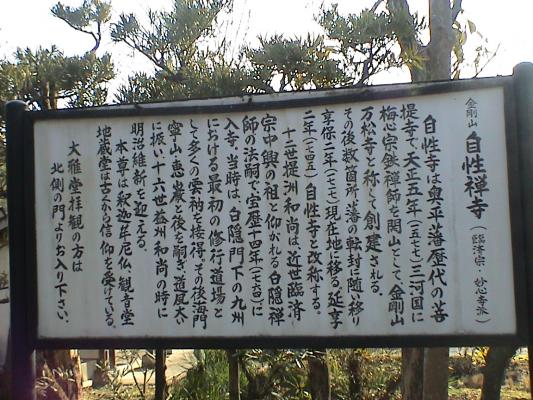 金剛山 自性禅寺（臨済宗・妙心寺派）
自性寺は奥平藩歴代の菩
提寺で、天正五年（一五七七）三河国に
梅心宗鉄禅師を開山として、金剛山
万松寺と称して創建される。
その後数箇所、藩の転封に随い移り
享保二年（一七一七）現在地に移る。延享
二年（一七四五）自性寺と改称する。
十二世提洲和尚は、近世臨済
宗中興の祖と仰がれる白隠禅
師の法嗣で、宝暦十四年（一七六四）に
入寺、当時は、白隠門下の九州
における最初の修行道場と
して多くの雲衲を接得、その後海門
霊山・恵巌と後を嗣ぎ、道風大い
に振い十六世益州和尚の時に
明治維新を迎える。
本尊は釈迦牟尼仏、観音堂
地蔵堂は古くから信仰を受けている。
大雅堂拝観の方は
北側の門よりお入り下さい。